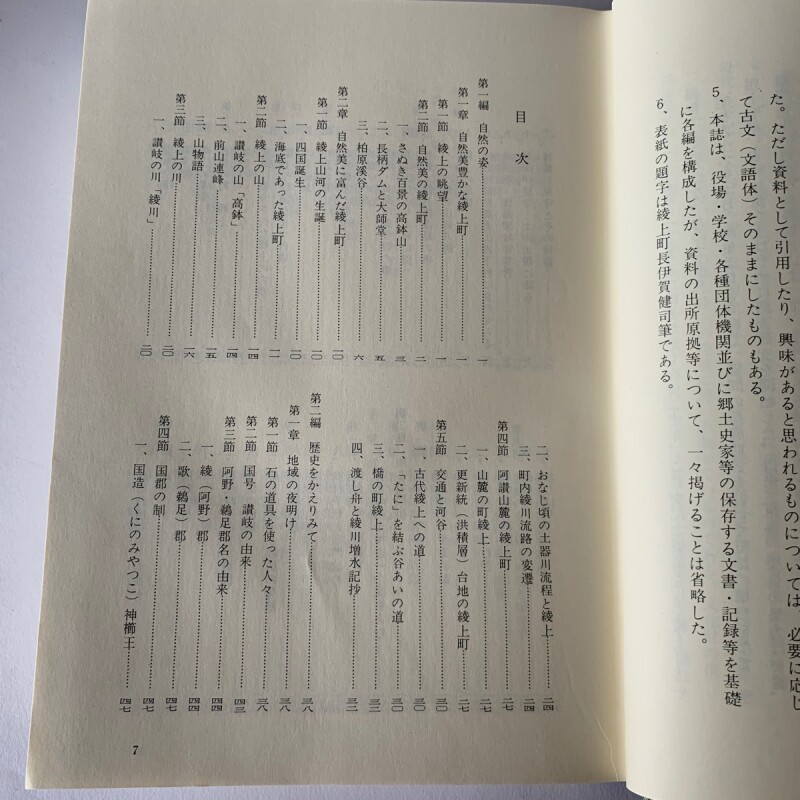 た。ただし資料として引用したり、興味があると思われるものについては、必要に応じ
て古文（文語体）そのままにしたものもある。
5、本誌は、役場・学校・各種団体機関並びに郷土史家等の保存する文書・記録等を基礎
に各編を構成したが、資料の出所原拠等について、一々掲げることは省略した。
6、表紙の題字は綾上町長伊賀健司筆である。
目次
第一編 自然の姿……一
第一章 自然美豊かな綾上町……一
第一節 綾上の眺望……一
第二節 自然美の綾上町……二
一、さぬき百景の高鉢山……三
二、長柄ダムと大師堂……五
三、柏原渓谷……六
第二章 自然美に富んだ綾上町……一〇
第一節 綾上山河の生誕……一〇
一、四国誕生……一〇
二、海底であった綾上町……一一
第二節 綾上の山……一四
一、讃岐の山「高鉢」……一四
二、前山連峰……一五
三、山物語……一六
第三節 綾上の川……二〇
一、讃岐の川「綾川」……二〇
二、おなじ頃の土器川流程と綾上……二四
三、町内綾川流路の変遷……二四
第四節 阿讃山麓の綾上町……二七
一、山麓の町綾上……二七
二、更新統（洪積層）台地の綾上町……二七
第五節 交通と河谷……三〇
一、古代綾上への道……三〇
二、「たに」を結ぶ谷あいの道……三〇
三、橋の町綾上……三二
四、渡し舟と綾川増水記抄……三二
第二編 歴史をかえりみて……三八
第一章 地域の夜明け……三八
第一節 石の道具を使った人々……三八
第二節 国号 讃岐の由来……四三
第三節 阿野・鵜足郡名の由来……四四
一、綾（阿野）郡……四四
二、歌（鵜足）郡……四七
第四節 国郡の制……四七
一、国造（くにのみやつこ）神櫛王……四七
7